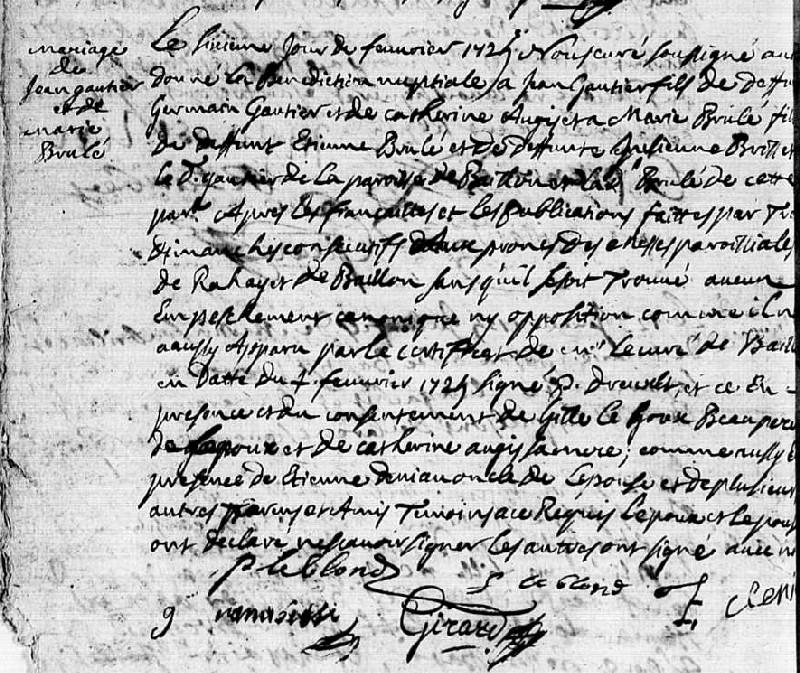 mariage
de
Jean gautier
et de
marie
Brulé
Le sixieme Jour de fevvrier 1725 Nous curé soussigné av
donné La Benediction nuptiale a Jean Gautier fils de deffu
Germain Gautier et de catherine Augis et a Marie Brulé fi
de deffunt Etienne Brulé et de deffunte Julienne
le dt gautier de La paroisse de Baillon et lad Brulé de cette
part Apres Les fiançailles et Les Publications faittes par Tr
dimanches consecutifs aux prones des Messes paroissiales
de Rahay et de Baillon sans qu'il se soit Trouvé aucun
Empeschement canonique ny opposition comme il n
a aussy Apparu par le certificat de mr Le curé de Baill
en datte du 4 fevvrier 1725 signé et ce En
presence et du consentement de Gille Le Houx Beaupere
de Lepoux et de catherine augis sa mere, comme aussy
presence de Etienne oncle de L'epouse et de plusieurs
autres parens et Amis Temoins a ce Requis Lepoux et Lepous
ont declaré ne scavoir signer Les autres ont signé avec n
P leblond
P Le blond
g
Girard